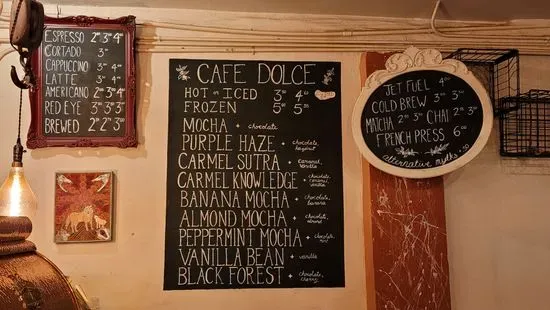 ESPRESSO 2⁰⁰ 3⁵⁰ 4⁰⁰
CORTADO 3⁵⁰
CAPPUCCINO 3⁵⁰ 4⁰⁰
LATTE 3⁵⁰ 4⁰⁰
AMERICANO 2⁵⁰ 3⁰⁰ 4⁰⁰
RED EYE 3⁰⁰ 3⁵⁰ 3⁷⁵
BREWED 2⁰⁰ 2⁵⁰ 3⁰⁰
CAFE DOLCE
HOT or ICED 3⁵⁰ 4⁵⁰
FROZEN 5⁰⁰ 5⁵⁰
MOCHA + chocolate
PURPLE HAZE + chocolate, hazelnut
CARMEL SUTRA + Caramel, vanilla
CARMEL KNOWLEDGE + chocolate, caramel, vanilla
BANANA MOCHA + chocolate, banana
ALMOND MOCHA + chocolate, almond
PEPPERMINT MOCHA + chocolate, mint
VANILLA BEAN + vanilla
BLACK FOREST + chocolate, cherry
JET FUEL 4⁰⁰
COLD BREW 3⁰⁰ 3⁵⁰
MATCHA 2⁵⁰ 3⁵⁰ CHAI 2⁵⁰ 3⁵⁰
FRENCH PRESS 6⁰⁰
alternative mylks + .50